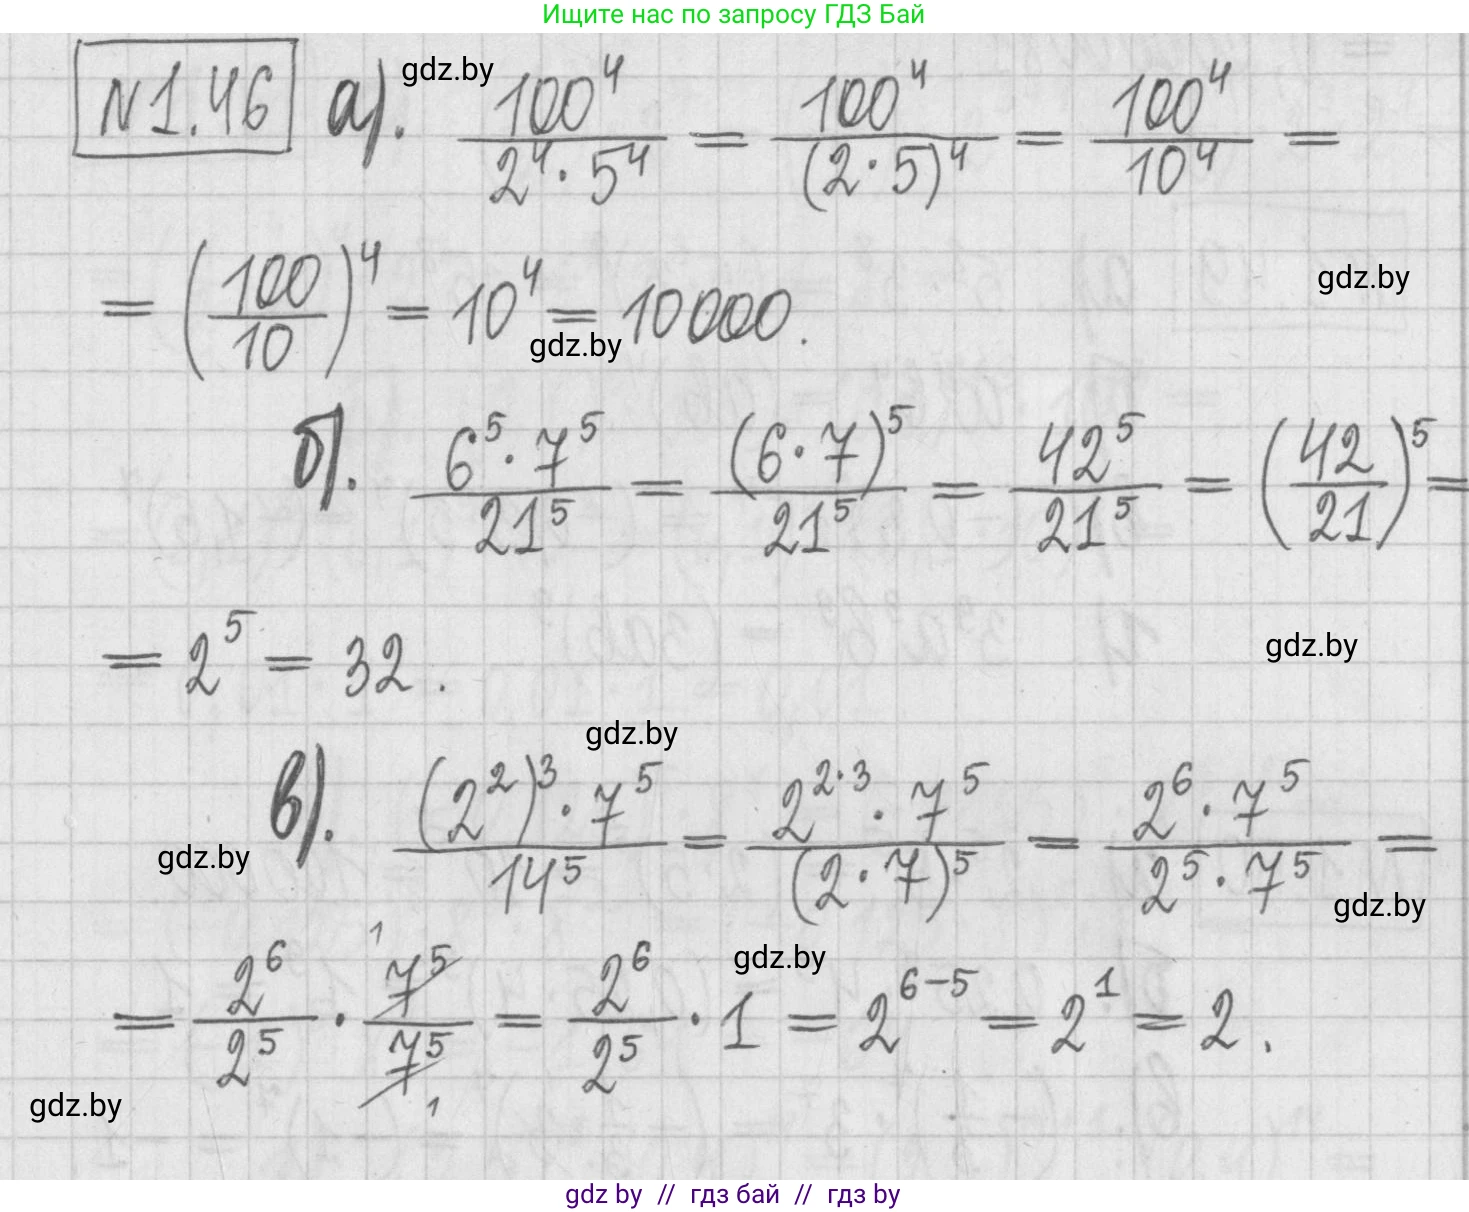 Ищите нас по запросу ГДЗ Бай
gdz.by
№1.46 а). 100^4 / (2^4 · 5^4) = 100^4 / (2 · 5)^4 = 100^4 / 10^4 =
= (100 / 10)^4 = 10^4 = 10000.
gdz.by
gdz.by
б). (6^5 · 7^5) / 21^5 = (6 · 7)^5 / 21^5 = 42^5 / 21^5 = (42 / 21)^5 =
= 2^5 = 32.
gdz.by
gdz.by
в). ((2^2)^3 · 7^5) / 14^5 = (2^(2·3) · 7^5) / (2 · 7)^5 = (2^6 · 7^5) / (2^5 · 7^5) =
gdz.by
gdz.by
gdz.by
= 2^6 / 2^5 · 7^5 1 / 7^5 1 = 2^6 / 2^5 · 1 = 2^(6-5) = 2^1 = 2.
gdz.by
gdz by // гдз бай // гдз by